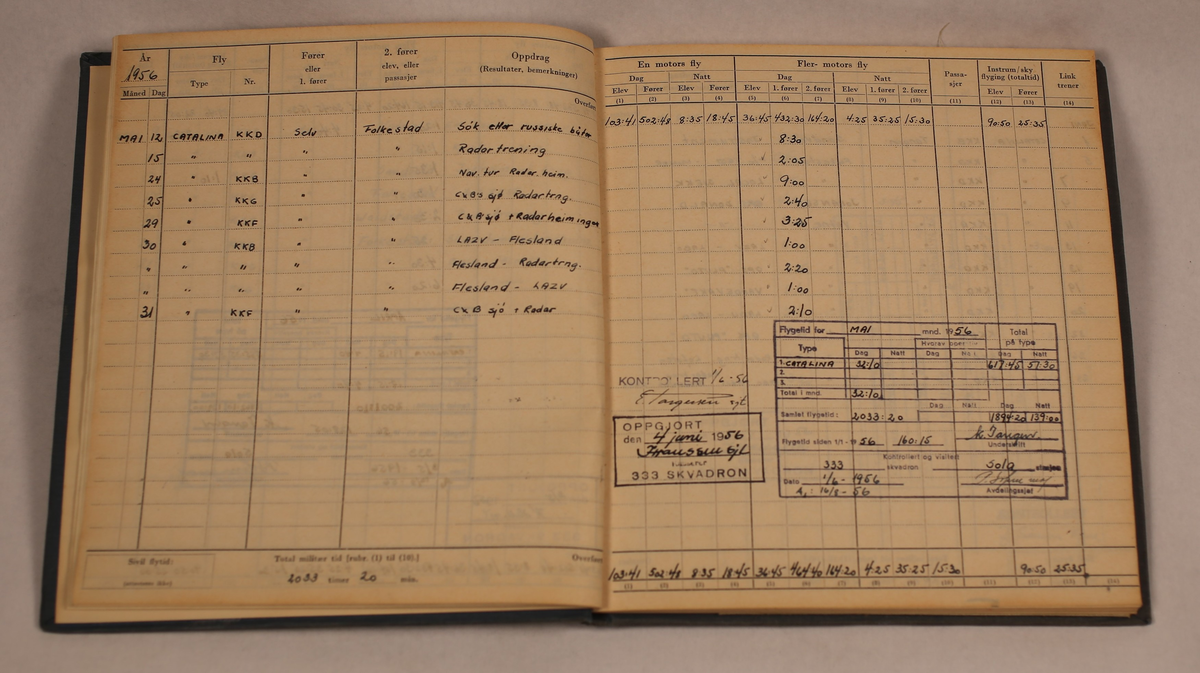 År
1956
Måned Dag
Fly
Type Nr.
Fører
eller
1. fører
2. fører
elev, eller
passasjer
Oppdrag
(Resultater, bemerkninger)
Overført
MAI 12 CATALINA KKD Selv Folkestad Søk etter russiske båter
15 " " " " Radartrening
24 " KKB " " Nav. tur Radar. heim.
25 " KKG " " CXB's sjø Radartrng.
29 " KKF " " CXB sjø + Radarheiminger
30 " KKB " " LAZV - Flesland
" " " " " Flesland - Radartrng.
" " " " " Flesland - LAZV
31 " KKF " " CXB sjø + Radar
Sivil flytid:
Total militær tid [rubr. (1) til (10).]
2033 timer 20 min.
En motors fly
Fler- motors fly
Dag Natt Dag Natt
Elev Fører Elev Fører Elev 1. fører 2. fører Elev 1. fører 2. fører
Passa-
sjer
Instrum/sky
flyging (totaltid)
Elev Fører
Link
trener
(1) (2) (3) (4) (5) (6) (7) (8) (9) (10) (11) (12) (13) (14)
103:41 502:48 8:35 18:45 36:45 432:30 164:20 4:25 35:25 15:30 90:50 25:35
8:30
2:05
9:00
2:40
3:25
1:00
2:20
1:00
2:10
KONTROLLERT 1/6-56
OPPGJORT
den 4 juni 1956
333 SKVADRON
Flygetid for MAI mnd. 1956 Total
på type
Type
Dag Natt Dag Natt Dag Natt
1. CATALINA 32:10 617:45 57:30
2.
3.
Total i mnd. 32:10
Dag Natt Dag Natt
Samlet flygetid: 2033:20 1894:20 139:00
Flygetid siden 1/1-1956 160:15
Underskrift
Kontrollert og visitert
333 skvadron Sola stasjon
Dato 1/6-1956
Avdelingssjef
103:41 502:48 8:35 18:45 36:45 464:40 164:20 4:25 35:25 15:30 90:50 25:35